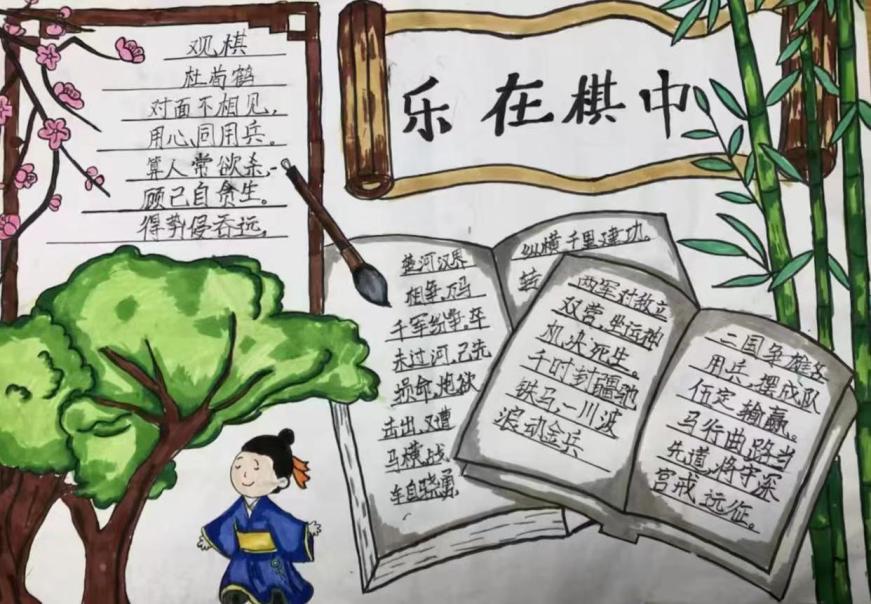 乐在棋中
观棋
杜荀鹤
对面不相见,
用心同用兵。
算人常欲杀,
顾己自贪生。
得势侵吞远,
楚河汉界
相争,马
千军纷争,卒
未过河,己先
损命,炮欲
击出,又遭
马横战
车自骁勇
纵横千里建功。
转
两军对敌立
双营,坐运神
机决死生。
千时封疆驰
铁马,一川波
浪动金兵
二国争雄各
用兵,摆成队
伍定输赢。
马行曲路当
先道,将守深
宫戒远征。